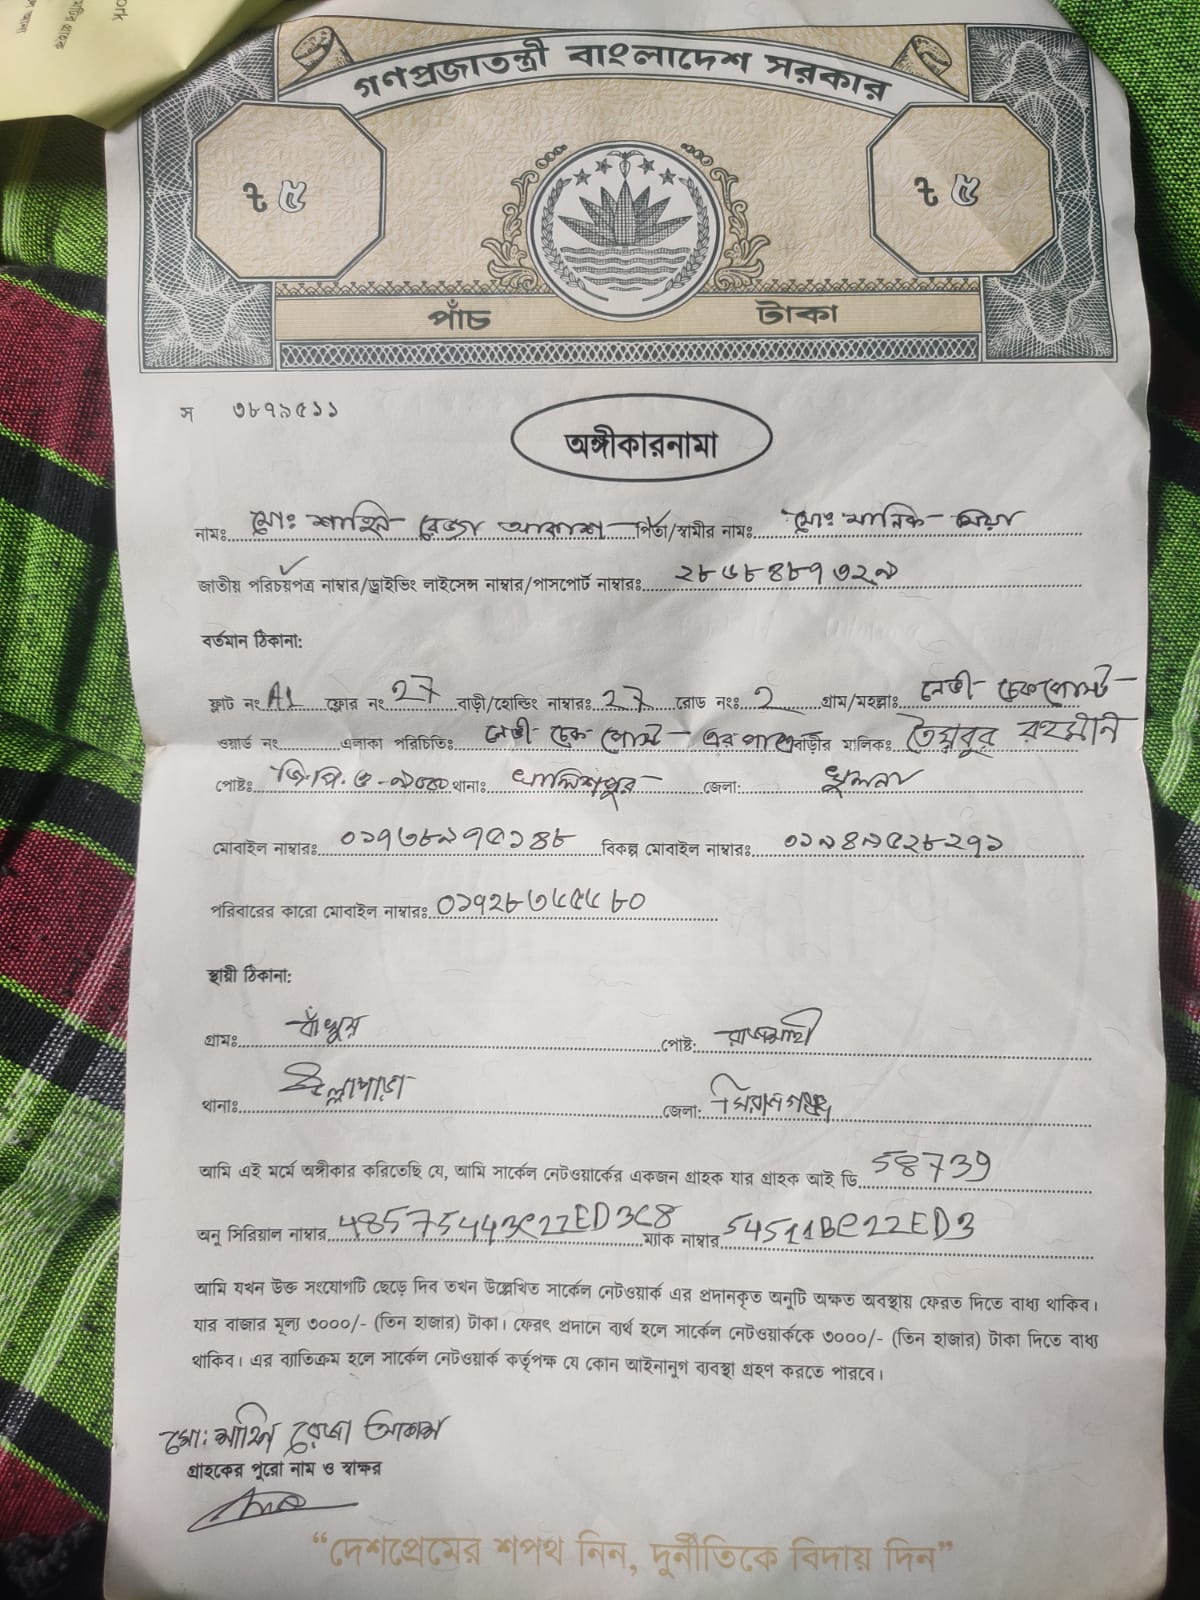 গণপ্রজাতন্ত্রী বাংলাদেশ সরকার
৳ ৫ ৳ ৫
পাঁচ টাকা
স ৩৮৭৯৫১১
অঙ্গীকারনামা
নামঃ মোঃ শাহিন রেজা আকাশ পিতা/স্বামীর নামঃ মোঃ মানিক মিয়া
জাতীয় পরিচয়পত্র নাম্বার/ড্রাইভিং লাইসেন্স নাম্বার/পাসপোর্ট নাম্বারঃ ২৮৬৮৪৮৭৩২৯
বর্তমান ঠিকানা:
ফ্লাট নং A1 ফ্লোর নং 27 বাড়ী/হোল্ডিং নাম্বারঃ 27 রোড নংঃ 2 গ্রাম/মহল্লাঃ নেভী চেকপোস্ট
ওয়ার্ড নং এলাকা পরিচিতিঃ নেভী চেক পোস্ট এর পাশে বাড়ীর মালিকঃ তৈয়বুর রহমান
পোষ্টঃ জি.পি.ও - ৯০০০ থানাঃ খালিশপুর জেলা: খুলনা
মোবাইল নাম্বারঃ ০১৭৩৮৯৭৫১৪৮ বিকল্প মোবাইল নাম্বারঃ ০১৯৪৯৫২৮২৭১
পরিবারের কারো মোবাইল নাম্বারঃ
স্থায়ী ঠিকানা:
গ্রামঃ পোষ্ট:
থানাঃ উল্লাপাড়া জেলা: সিরাজগঞ্জ
আমি এই মর্মে অঙ্গীকার করিতেছি যে, আমি সার্কেল নেটওয়ার্কের একজন গ্রাহক যার গ্রাহক আই ডি 58739
অনু সিরিয়াল নাম্বার ম্যাক নাম্বার
আমি যখন উক্ত সংযোগটি ছেড়ে দিব তখন উল্লেখিত সার্কেল নেটওয়ার্ক এর প্রদানকৃত অনুটি অক্ষত অবস্থায় ফেরত দিতে বাধ্য থাকিব।
যার বাজার মূল্য ৩০০০/- (তিন হাজার) টাকা। ফেরৎ প্রদানে ব্যর্থ হলে সার্কেল নেটওয়ার্ককে ৩০০০/- (তিন হাজার) টাকা দিতে বাধ্য
থাকিব। এর ব্যাতিক্রম হলে সার্কেল নেটওয়ার্ক কর্তৃপক্ষ যে কোন আইনানুগ ব্যবস্থা গ্রহণ করতে পারবে।
মো: শাহিন রেজা আকাশ
গ্রাহকের পুরো নাম ও স্বাক্ষর
“দেশপ্রেমের শপথ নিন, দুর্নীতিকে বিদায় দিন”